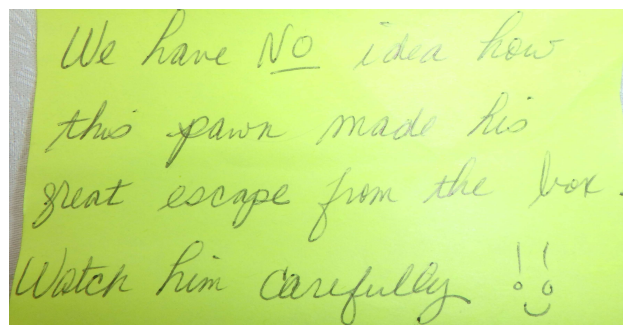 We have NO idea how
this pawn made his
great escape from the box.
Watch him carefully !!